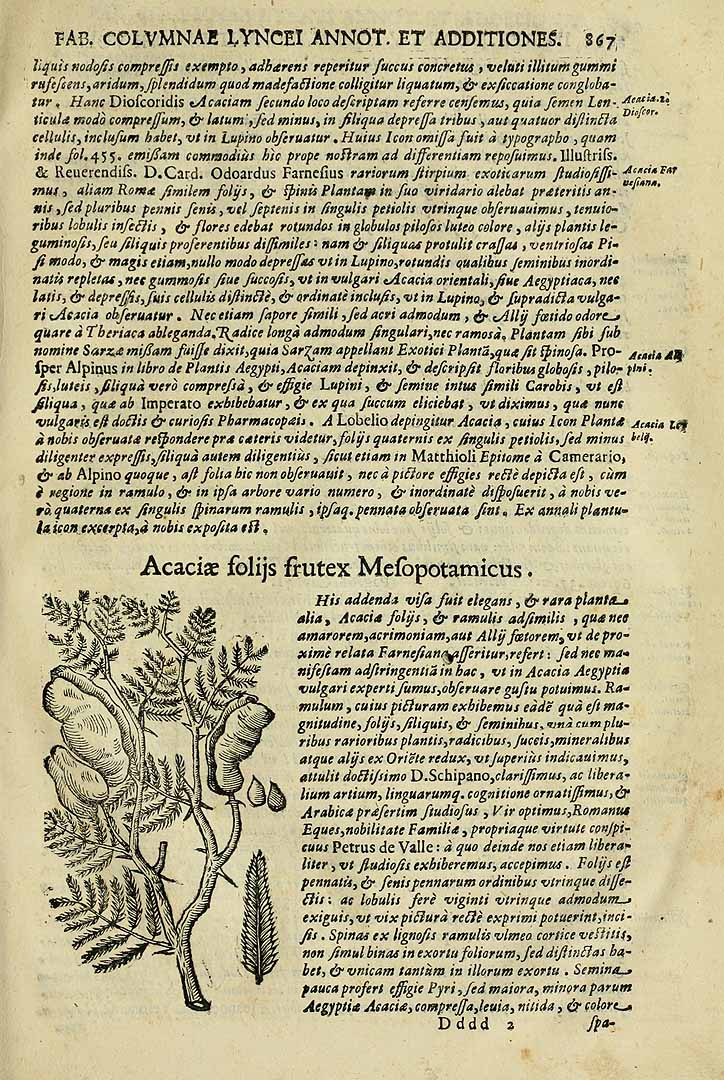 FAB. COLVMNAE LYNCEI ANNOT. ET ADDITIONES. 867
liquis nodosis compressis exempto, adhærens reperitur succus concretus, veluti illitum gummi
rufescens, aridum, splendidum quod madefactione colligitur liquatum, & exsiccatione congloba-
tur. Hanc Dioscoridis Acaciam secundo loco descriptam referre censemus, quia semen Len-
Acacia.2.
Dioscor.
ticulæ modò compressum, & latum, sed minus, in siliqua depressa tribus, aut quatuor distincta
cellulis, inclusum habet, vt in Lupino obseruatur. Huius Icon omissa fuit à typographo, quam
inde fol. 455. emissam commodiùs hic prope nostram ad differentiam reposuimus. Illustriss.
& Reuerendiss. D. Card. Odoardus Farnesius rariorum stirpium exoticarum studiosissi-
Acacia Far
nesiana.
mus, aliam Romæ similem folijs, & spinis Plantam in suo viridario alebat præteritis an-
nis, sed pluribus pennis senis, vel septenis in singulis petiolis vtrinque obseruauimus, tenuio-
ribus lobulis insectis, & flores edebat rotundos in globulos pilosos luteo colore, alijs plantis le-
guminosis, seu siliquis proferentibus dissimiles: nam & siliquas protulit crassas, ventriosas Pi-
si modo, & magis etiam, nullo modo depressas vt in Lupino, rotundis qualibus seminibus inordi-
natis repletas, nec gummosis siue succosis, vt in vulgari Acacia orientali, siue Aegyptiaca, nec
latis, & depressis, suis cellulis distinctè, & ordinatè inclusis, vt in Lupino, & supradicta vulga-
ri Acacia obseruatur. Nec etiam sapore simili, sed acri admodum, & Allij fœtido odore
quare à Theriaca ableganda. Radice longa admodum singulari, nec ramosa, Plantam sibi sub
nomine Sarzæ missam fuisse dixit, quia Sarzam appellant Exotici Plantā, quæ sit spinosa. Pro-
sper Alpinus in libro de Plantis Aegypti, Acaciam depinxit, & descripsit floribus globosis, pilo-
Acacia Al
pini.
sis, luteis, siliquâ verò compressâ, & effigie Lupini, & semine intus simili Carobis, vt est
siliqua, quæ ab Imperato exhibebatur, & ex qua succum eliciebat, vt diximus, quæ nunc
vulgaris est doctis & curiosis Pharmacopæis. A Lobelio depingitur Acacia, cuius Icon Plantæ
Acacia Lo
belij.
à nobis obseruatæ respondere præ cæteris videtur, folijs quaternis ex singulis petiolis, sed minus
diligenter expressis, siliquâ autem diligentiùs, sicut etiam in Matthioli Epitome à Camerario,
& ab Alpino quoque, ast folia hic non obseruauit, nec à pictore effigies rectè depicta est, cùm
è regione in ramulo, & in ipsa arbore vario numero, & inordinatè disposuerit, à nobis ve-
rò quaterna ex singulis spinarum ramulis, ipsaq. pennata obseruata sint. Ex annali plantu-
la icon excerpta, à nobis exposita est.
Acaciæ folijs frutex Mesopotamicus.
His addenda visa fuit elegans, & rara planta
alia, Acaciæ folijs, & ramulis adsimilis, quæ nec
amarorem, acrimoniam, aut Allij fœtorem, vt de pro-
ximè relata Farnesiana asseritur, refert: sed nec ma-
nifestam adstringentiā in hac, vt in Acacia Aegyptia
vulgari experti sumus, obseruare gustu potuimus. Ra-
mulum, cuius picturam exhibemus eādē quâ est ma-
gnitudine, folijs, siliquis, & seminibus, vnà cum plu-
ribus rarioribus plantis, radicibus, succis, mineralibus
atque alijs ex Oriēte redux, vt superiùs indicauimus,
attulit doctissimo D. Schipano, clarissimus, ac libera-
lium artium, linguarumq. cognitione ornatissimus, &
Arabicæ præsertim studiosus, Vir optimus, Romanus
Eques, nobilitate Familiæ, propriaque virtute conspi-
cuus Petrus de Valle: à quo deinde nos etiam libera-
liter, vt studiosis exhiberemus, accepimus. Folijs est
pennatis, & senis pennarum ordinibus vtrinque disse-
ctis: ac lobulis ferè viginti vtrinque admodum
exiguis, vt vix picturâ rectè exprimi potuerint, inci-
sis. Spinas ex lignosis ramulis vlmeo cortice vestitis,
non simul binas in exortu foliorum, sed distinctas ha-
bet, & vnicam tantùm in illorum exortu. Semina
pauca profert effigie Pyri, sed maiora, minora parum
Aegyptiæ Acaciæ, compressa, leuia, nitida, & colore
Dddd 2
spa-